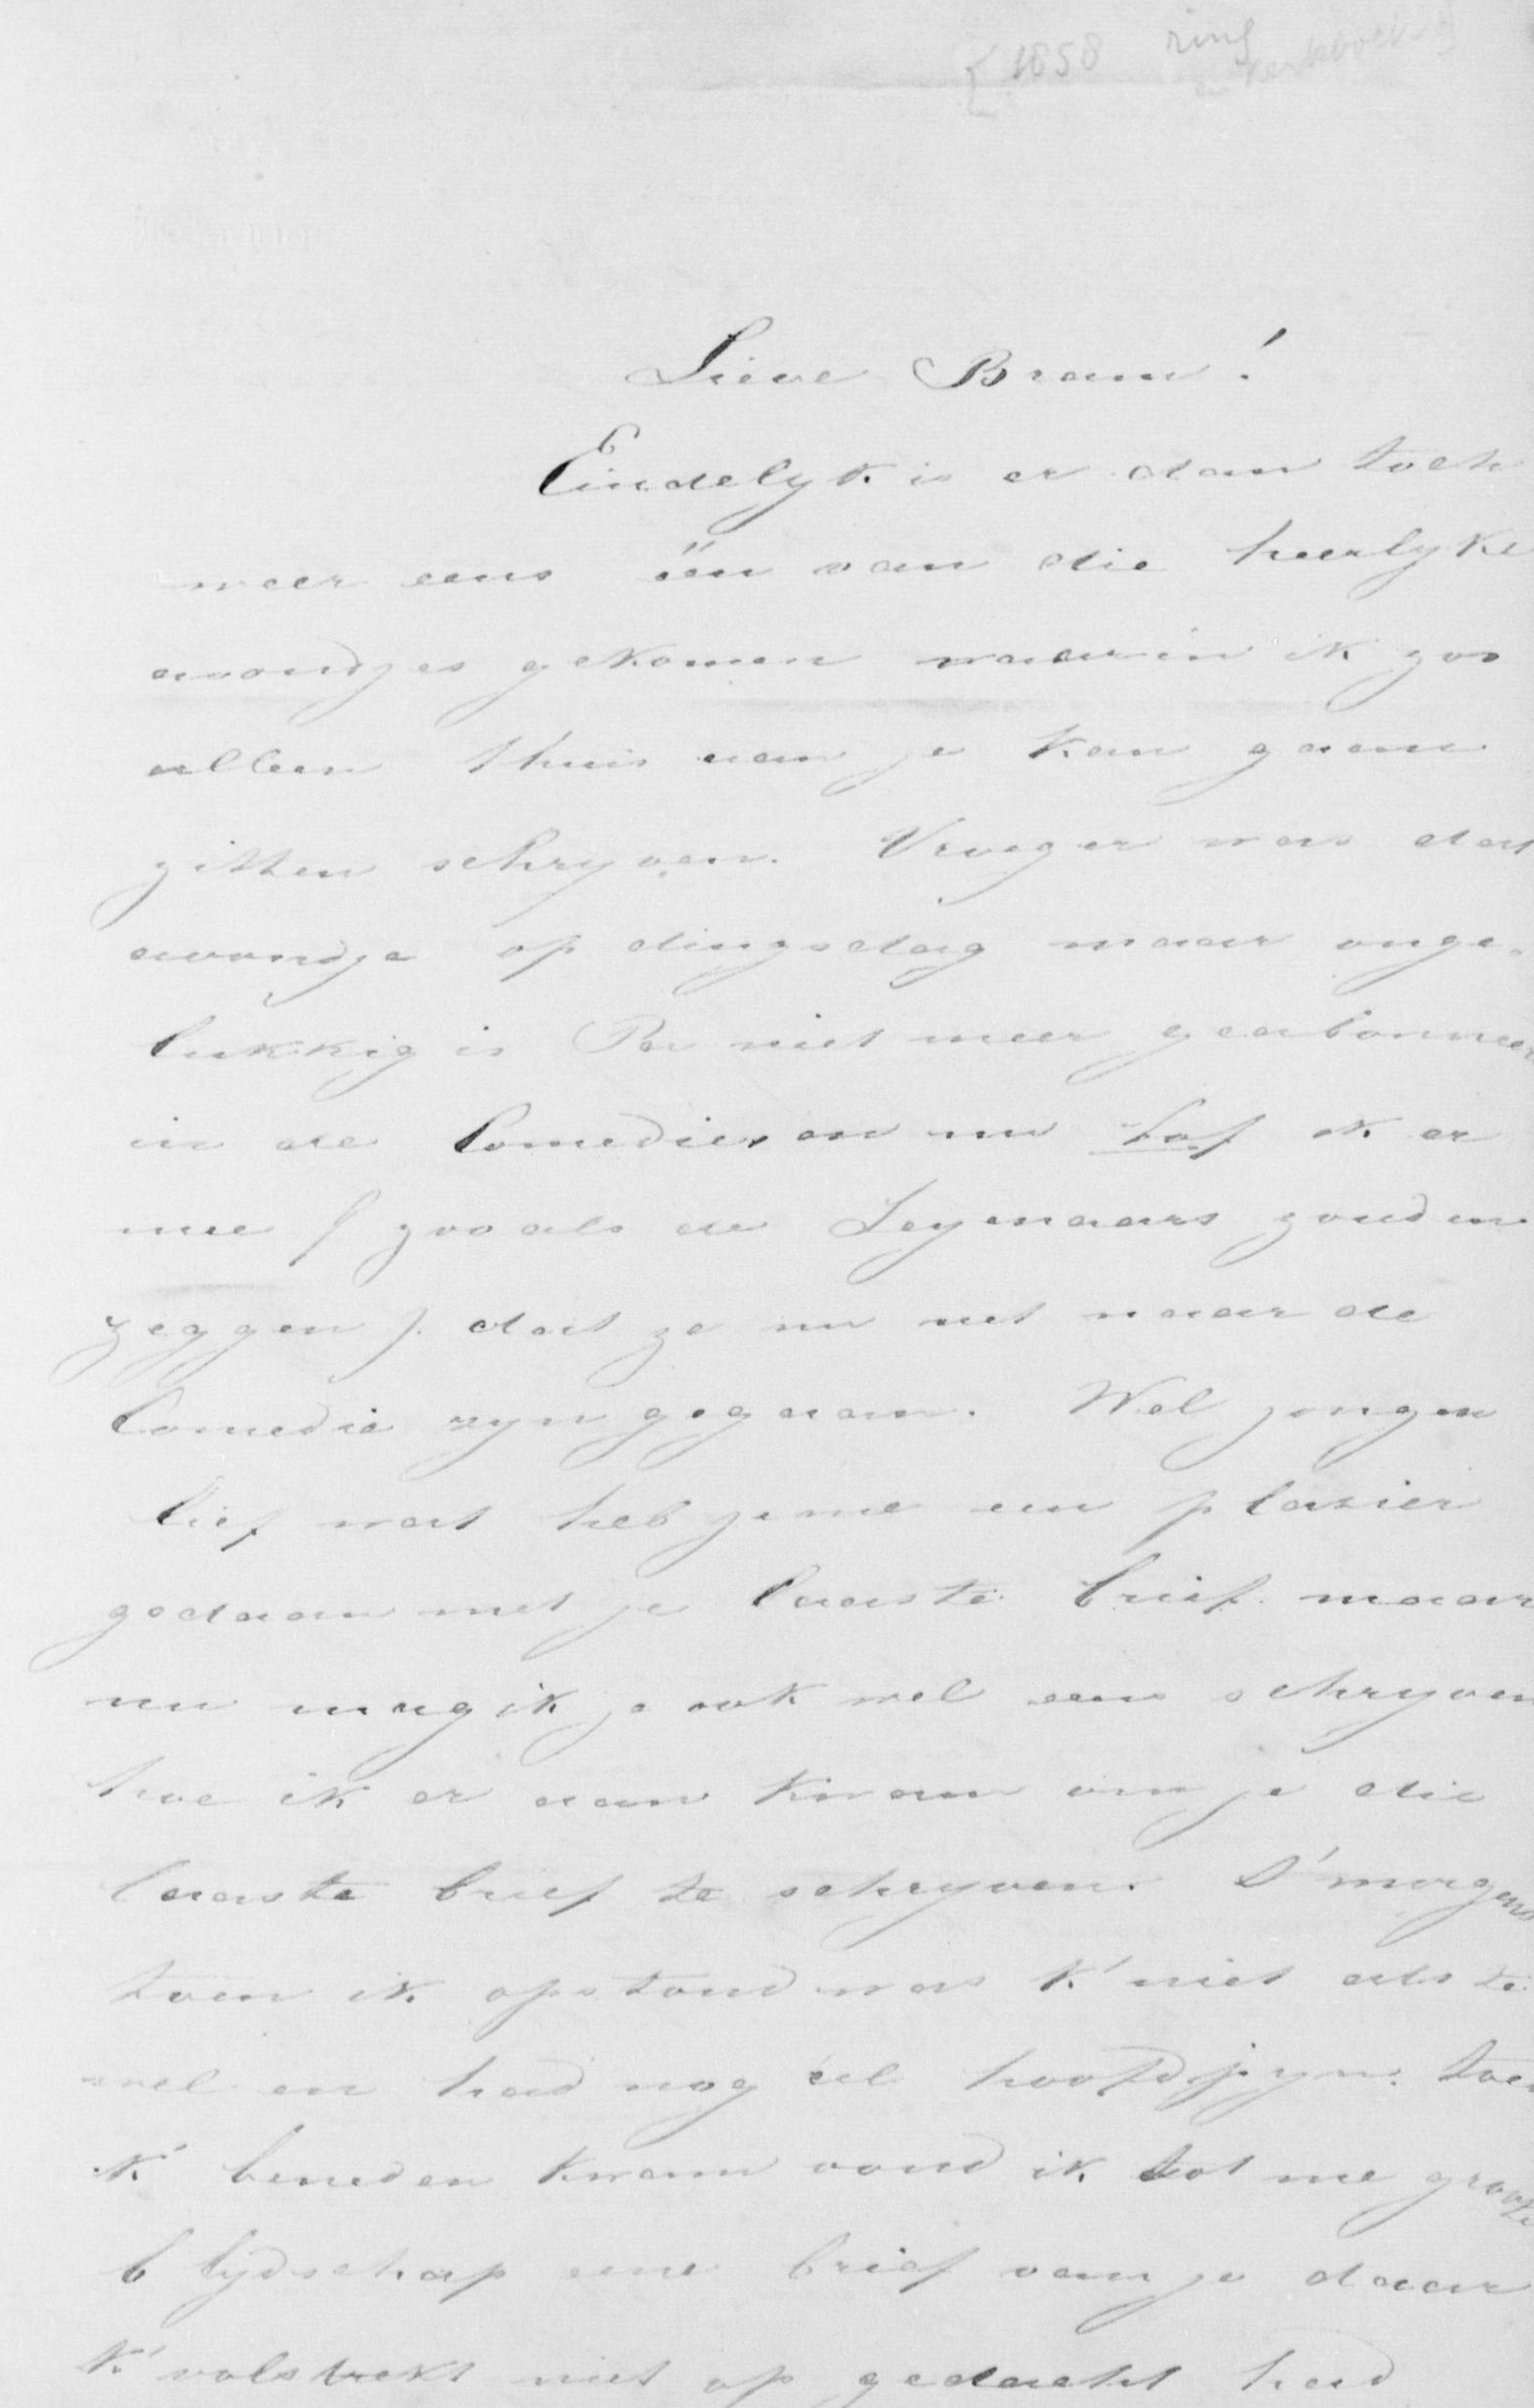 [1858 ring
Lieve Bram!
Eindelyk is er dan toch
weer eens één van die heerlyke
avondjes gekomen waarin ik zoo
alleen thuis aan je kan gaan
zitten schryven. Vroeger was dat
avondje op dingsdag maar onge-
lukkig is Pa niet meer geabonneer
in de Comedie, en nu bof ik er
mee (zooals de Leyenaars zouden
zeggen) dat ze nu net naar de
Comedie zyn gegaan. Wel jongen
lief wat heb je me een plasier
gedaan met je laaste brief. maar
nu mag ik je ook wel eens schryven
hoe ik er aan kwam om je die
laaste brief te schryven. S'morgens
toen ik opstond was k' niet als te
wel en had nog al hoofdpyn. toen
k' beneden kwam vond ik tot me groote
blydschap eene brief van je daar
k' volstrekt niet op gedacht had